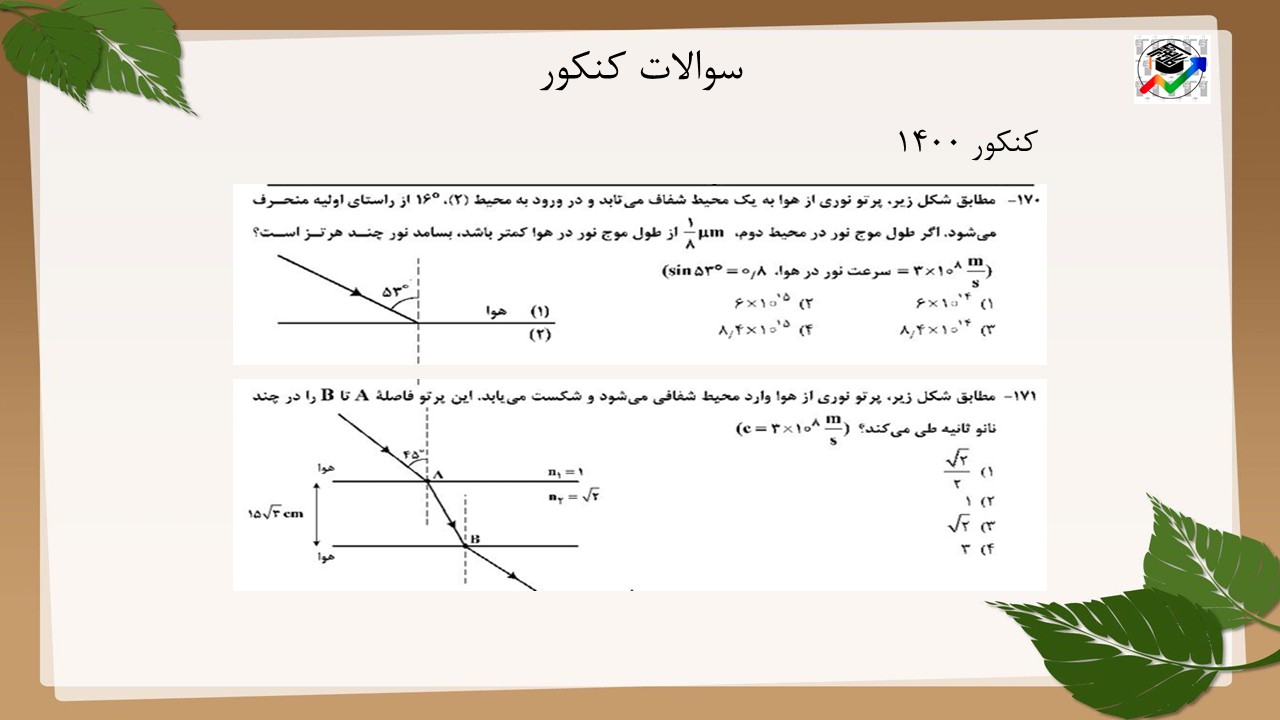 سوالات کنکور
کنکور ۱۴۰۰
۱۷۰- مطابق شکل زیر، پرتو نوری از هوا به یک محیط شفاف می‌تابد و در ورود به محیط (۲)، ۱۶° از راستای اولیه منحرف
می‌شود. اگر طول موج نور در محیط دوم، ۱/۸ μm از طول موج نور در هوا کمتر باشد، بسامد نور چند هرتز است؟
(sin ۵۳° = ۰٫۸ ،سرعت نور در هوا = ۳×۱۰^۸ m/s)
۱) ۶×۱۰^۱۴ ۲) ۶×۱۰^۱۵
۳) ۸٫۴×۱۰^۱۴ ۴) ۸٫۴×۱۰^۱۵
۵۳°
هوا (۱)
(۲)
۱۷۱- مطابق شکل زیر، پرتو نوری از هوا وارد محیط شفافی می‌شود و شکست می‌یابد. این پرتو فاصلهٔ A تا B را در چند
نانو ثانیه طی می‌کند؟ (c = ۳×۱۰^۸ m/s)
۱) √۲/۲
۲) ۱
۳) √۲
۴) ۳
۴۵°
A
هوا
n₁ = ۱
n₂ = √۲
۱۵√۳ cm
B
هوا